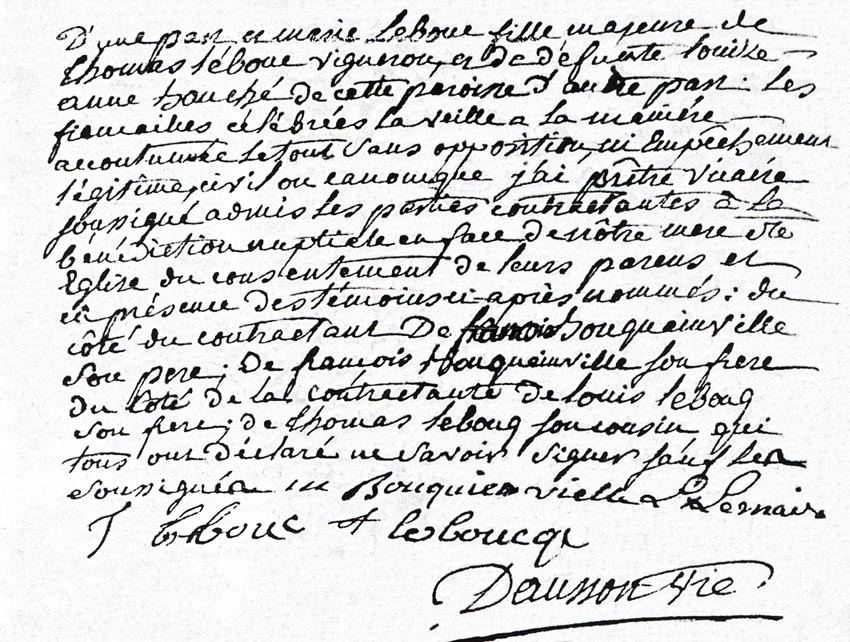 D'une part et marie leboue fille majeure de
thomas leboue vigneron, et de defunte louise
anne houché de cette paroisse d'autre part. Les
fiancailles célébrées la veille a la manière
accoutumée le tout sans opposition, ni Empêchement
légitime, civil ou canonique j'ai prêtre vicaire
soussigné admis les parties contractantes à la
bénédiction nuptiale en face de nôtre mere Ste
Eglise du consentement de leurs parens et
en présence des témoins ci-après nommés: du
côté du contractant De bouquainville
son pere; De françois bouquainville son frere
du côté de la contractante de louis leboug
son frere; de thomas leboug son cousin qui
tous ont déclaré ne savoir signer sauf les
soussignés Bouquien vielle Lemair
T leboue A leboucq
Dausson Vic